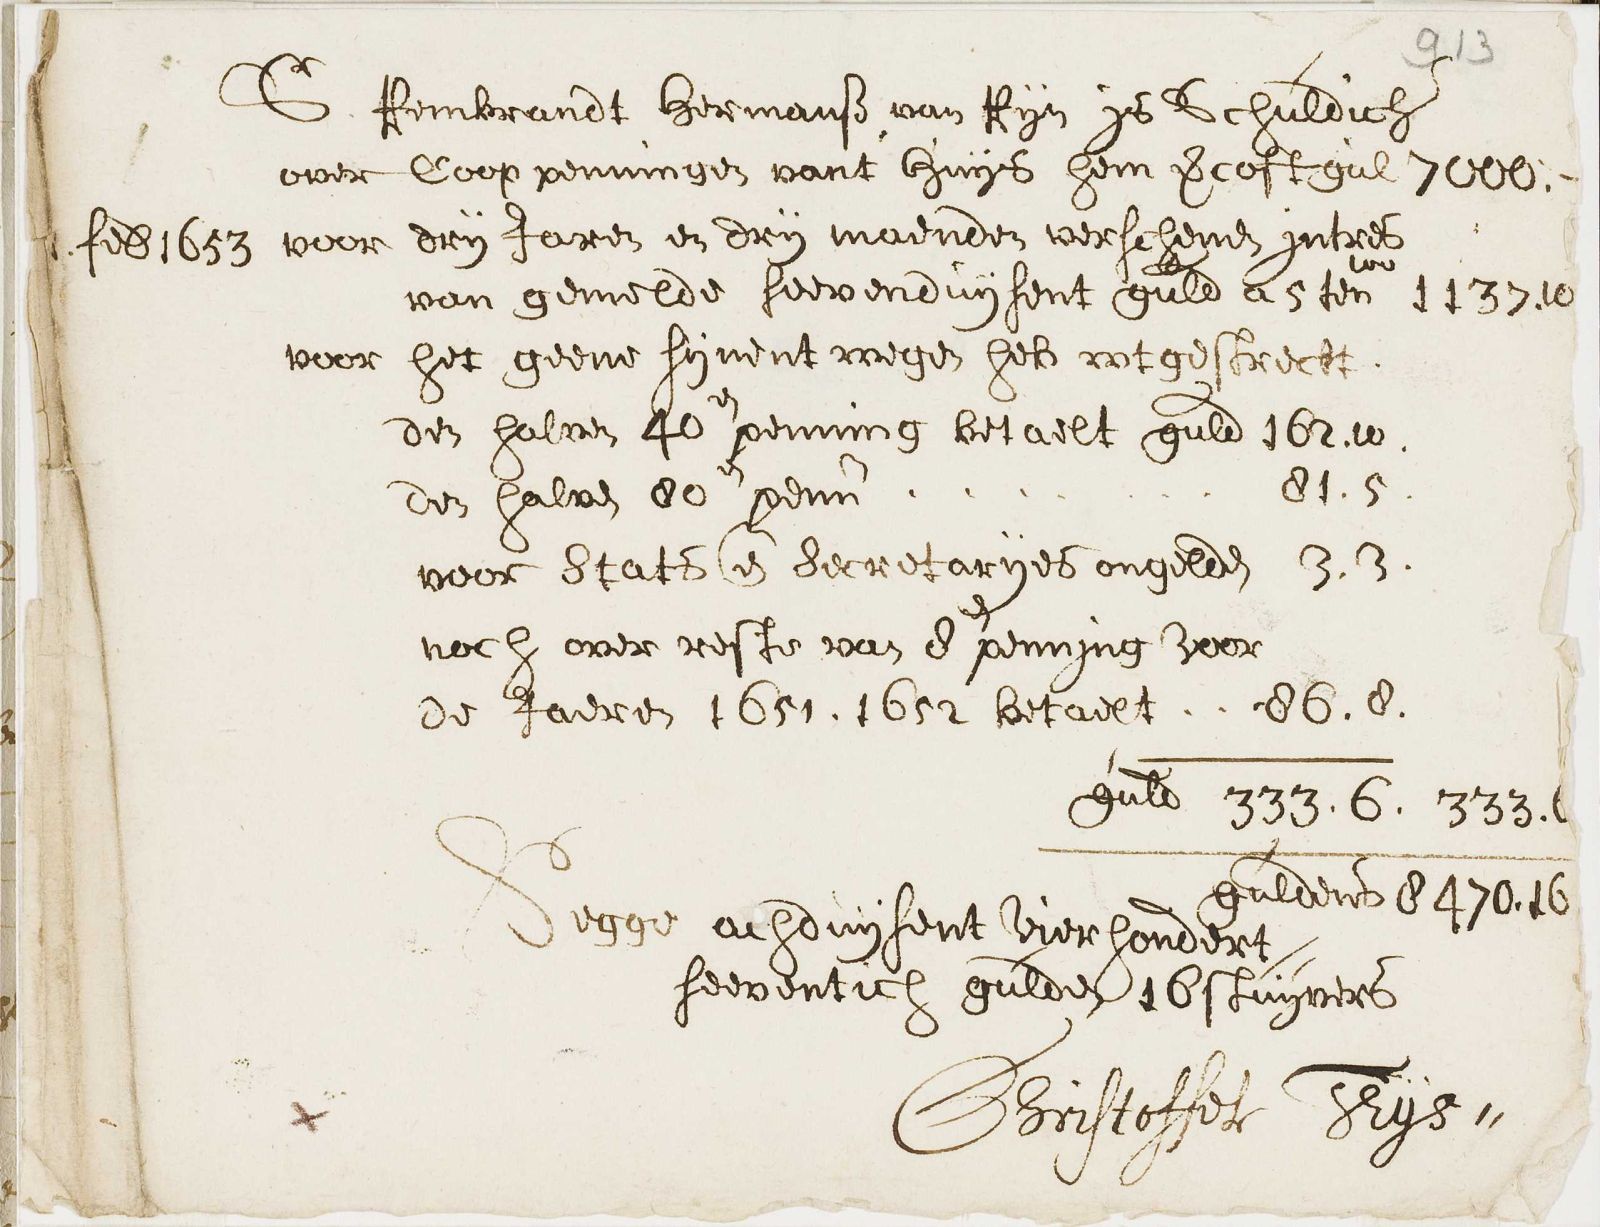 913
S. Rembrandt Hermansz van Rijn is Schuldich
over Cooppenningen vant huys hem vercoft gul 7000.-
1. feb 1653 voor dry Jaren en dry maenden verschenen intres
van gemelde seevenduysent guld a 5 ten 100 1137.10
voor het geene sijnent wegen heb wtgestreckt.
den halven 40en penning betaelt guld 162.10.
den halven 80en penn . . . . . . . 81.5.
voor Stats en Secretaryes ongelden 3.3.
noch over reste van 8en penning voor
de Jaeren 1651. 1652 betaelt . . 86.8.
guld 333.6. 333.6
guldens 8470.16
Segge achduysent vierhondert
seeventich gulden 16 stuyvers
Christoffel Thys